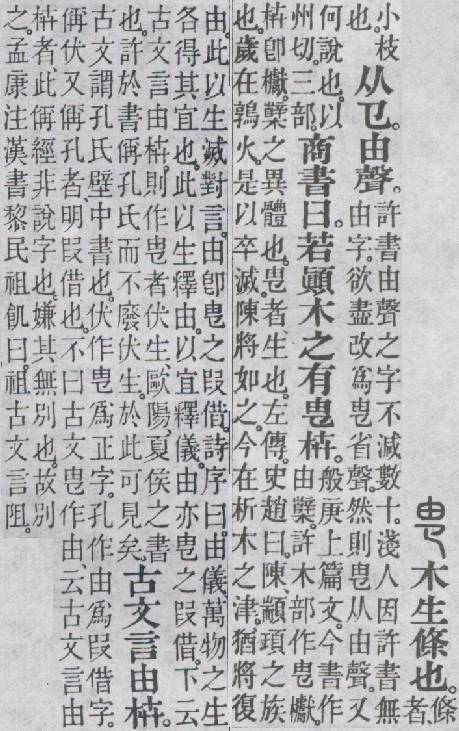 㽕 木生條也。條者、
小枝也。从𢎘。由聲。許書由聲之字不減數十。淺人因許書無由字。欲盡改爲㽕省聲。然則㽕从由聲。又
何說也。以州切。三部。商書曰。若顚木之有㽕枿。般庚上篇文。今書作由櫱。許木部作㽕㰕。
枿卽㰕櫱之異體也。㽕者、生也。左傳。史趙曰。陳、顓頊之族
也。歲在鶉火。是以卒滅。陳將如之。今在析木之津。猶將復
由。此以生滅對言。由卽㽕之叚借。詩序曰。由儀、萬物之生
各得其宜也。此以生釋由。以宜釋儀。由亦㽕之叚借。下云
古文言由枿。則作㽕者伏生歐陽夏侯之書也。許於書偁孔氏而不廢伏生。於此可見矣。古文言由枿。
古文謂孔氏壁中書也。伏作㽕爲正字。孔作由爲叚借字。
偁伏又偁孔者、明叚借也。不曰古文㽕作由、云古文言由
枿者、此偁經非說字也。嫌其無別也。故別
之。孟康注漢書黎民祖飢曰。祖古文言阻。